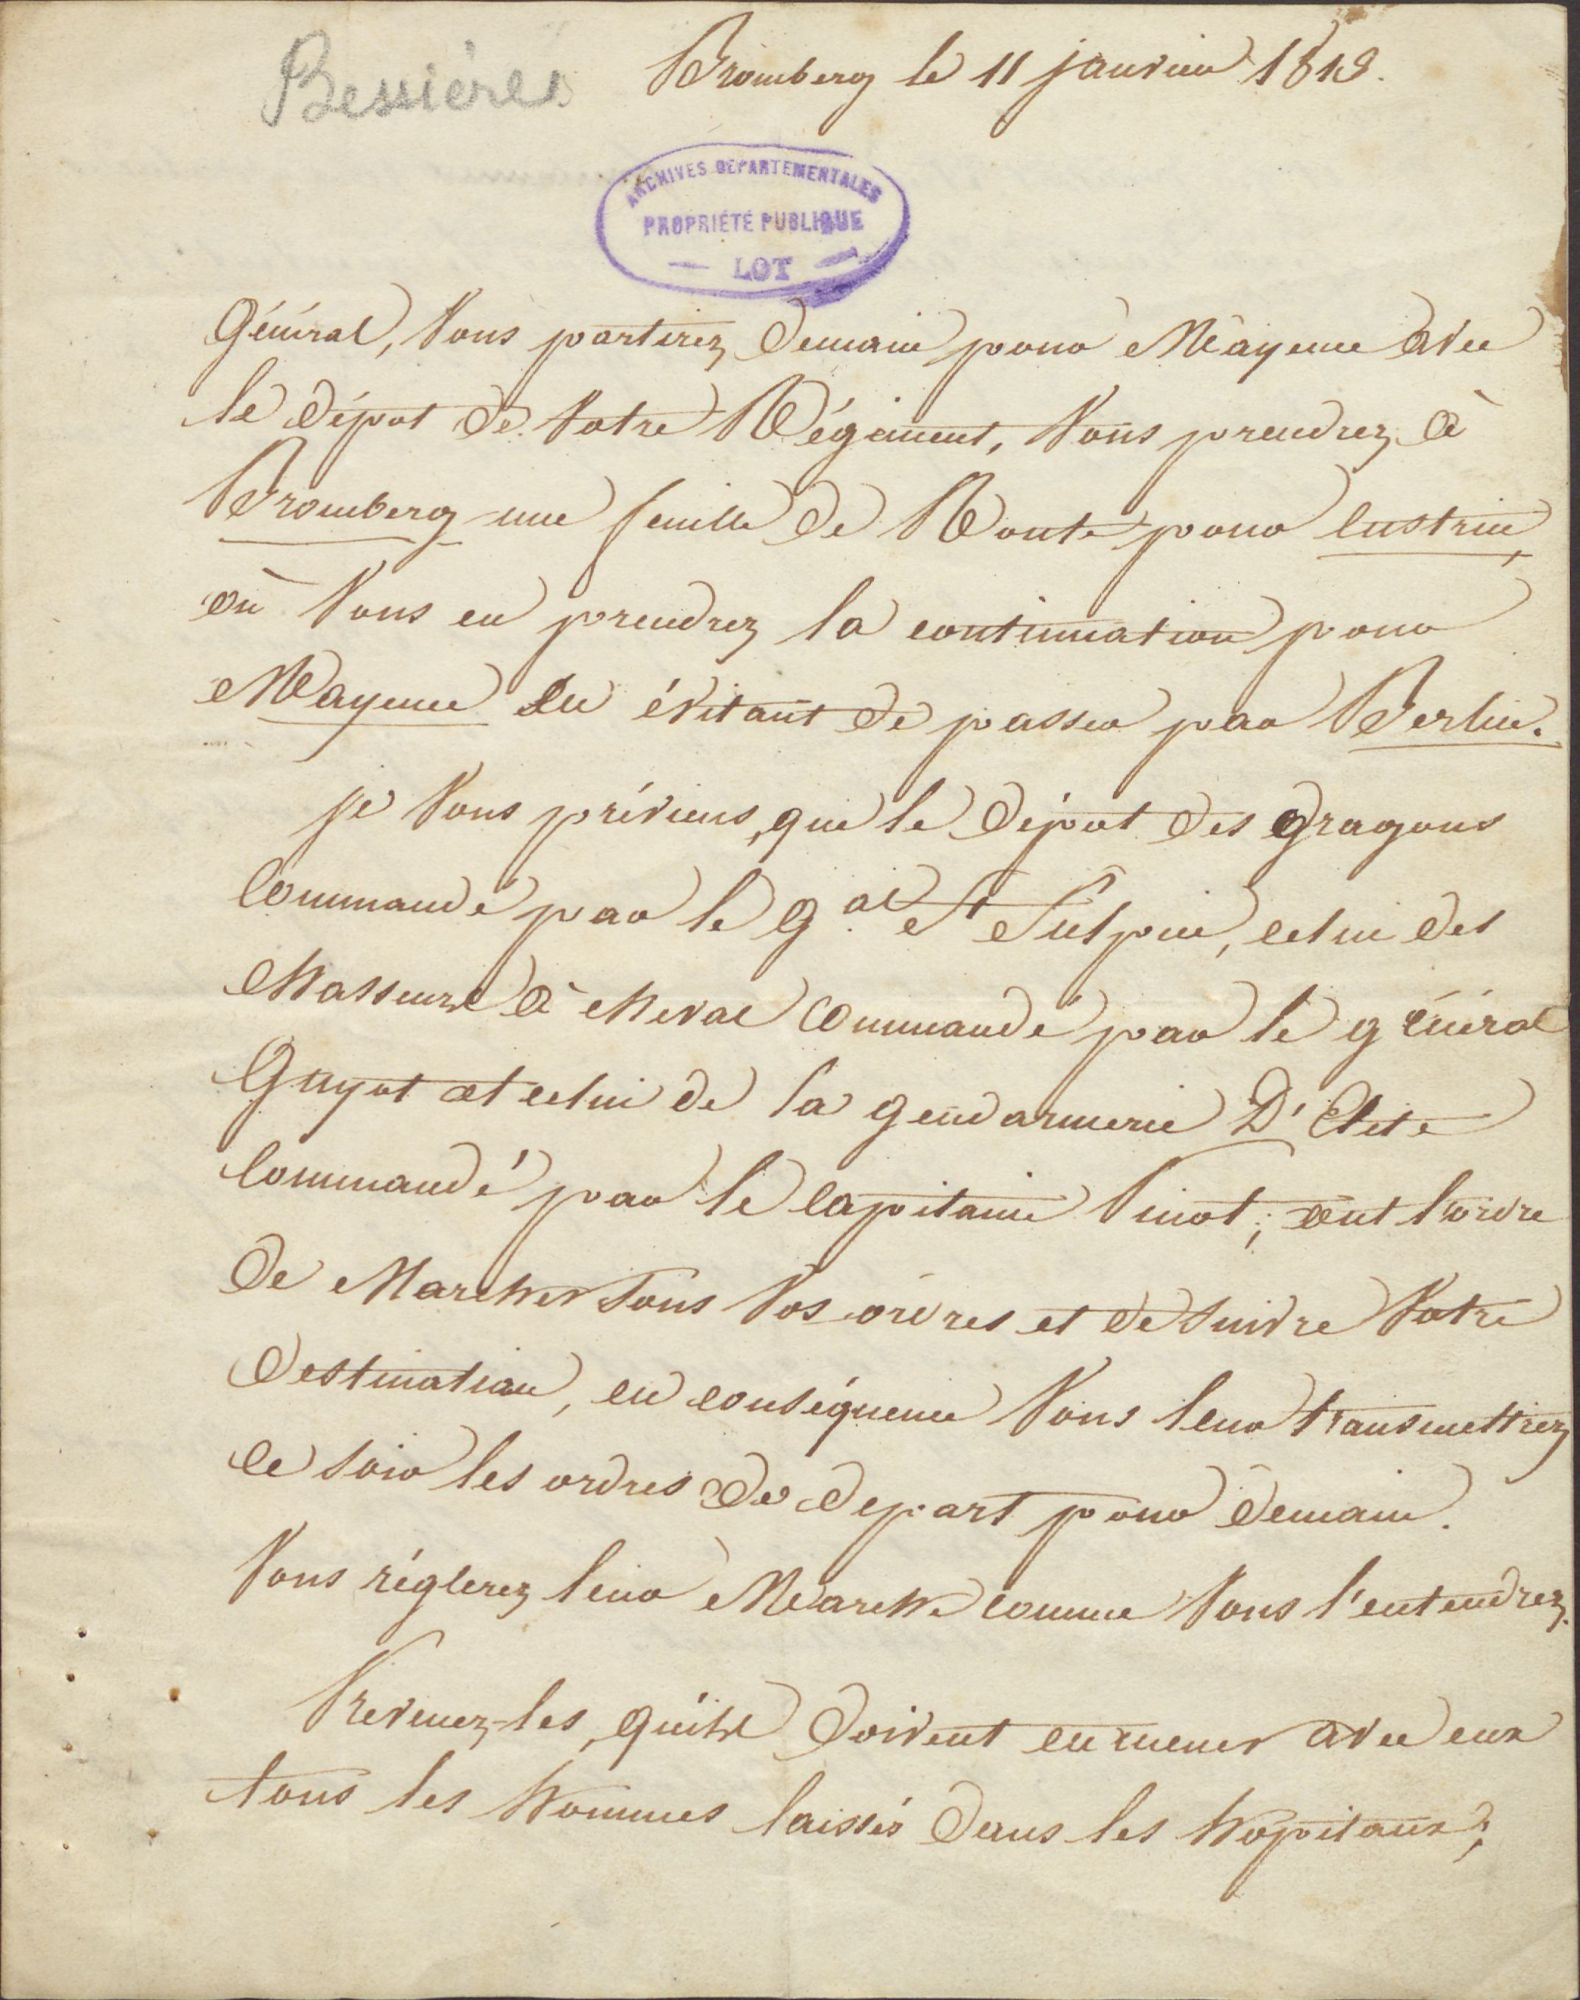 Bessières
Bromberg le 11 janvier 1813.
ARCHIVES DÉPARTEMENTALES
PROPRIÉTÉ PUBLIQUE
LOT
Général, Vous partirez demain pour Mayence avec
le dépot de Votre Régiment, Vous prendrez à
Bromberg une feuille de Route pour Custrin,
où Vous en prendrez la continuation pour
Mayence en évitant de passer par Berlin.
je Vous préviens, que le dépot des dragons
Commandé par le gal St Sulpice, celui des
Chasseurs à Cheval Commandé par le général
Guyot et celui de la gendarmerie D'Elite
Commandé par le Capitaine Pinot; ont l'ordre
de Marcher sous Vos ordres et de suivre Votre
destination, en conséquence Vous leur transmettrez
ce soir les ordres de depart pour demain.
Vous réglerez leur Marche comme Vous l'entendrez.
Prevenez-les, qu'ils doivent emmener avec eux
tous les hommes laissés dans les hopitaux;